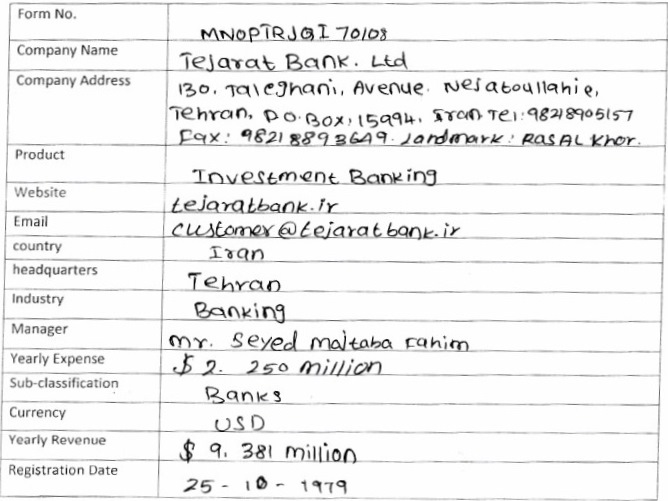 Form No.
MNOPTRJGI 70108
Company Name
Tejarat Bank. Ltd
Company Address
130, Taleghani, Avenue. Nejatoullahie,
Tehran, P.O. Box, 15994, Iran Tel: 98218905157
Fax: 98218893649. Landmark: RAS AL Khor.
Product
Investment Banking
Website
tejaratbank.ir
Email
customer@tejaratbank.ir
country
Iran
headquarters
Tehran
Industry
Banking
Manager
mr. Seyed majtaba rahim
Yearly Expense
$ 2. 250 million
Sub-classification
Banks
Currency
USD
Yearly Revenue
$ 9. 381 million
Registration Date
25 - 10 - 1979